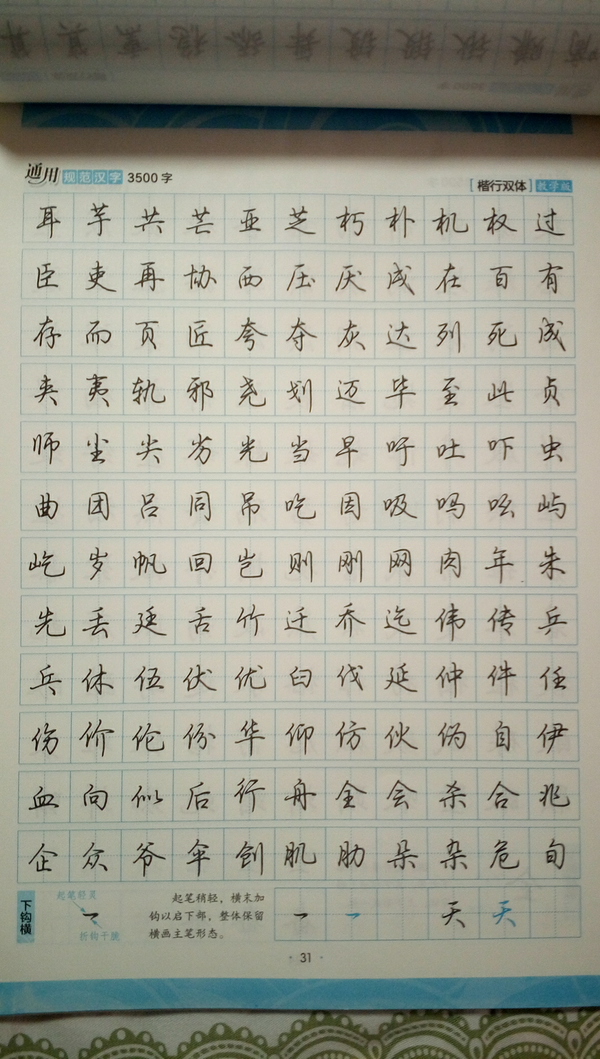 通用 规范汉字 3500 字 [楷行双体] 教学版
耳 芋 共 芒 亚 芝 朽 朴 机 权 过
臣 吏 再 协 西 压 厌 戌 在 百 有
存 而 页 匠 夸 夺 灰 达 列 死 成
夹 夷 轨 邪 尧 划 迈 毕 至 此 贞
师 尘 尖 劣 光 当 早 吁 吐 吓 虫
曲 团 吕 同 吊 吃 因 吸 吗 吆 屿
屹 岁 帆 回 岂 则 刚 网 肉 年 朱
先 丢 廷 舌 竹 迁 乔 迄 伟 传 乒
乓 休 伍 伏 优 臼 伐 延 仲 件 任
伤 价 伦 份 华 仰 仿 伙 伪 自 伊
血 向 似 后 行 舟 全 会 杀 合 兆
企 众 爷 伞 创 肌 肋 朵 杂 危 旬
下钩横
起笔轻灵
折钩干脆
起笔稍轻，横末加
钩以启下部，整体保留
横画主笔形态。
天 天
· 31 ·